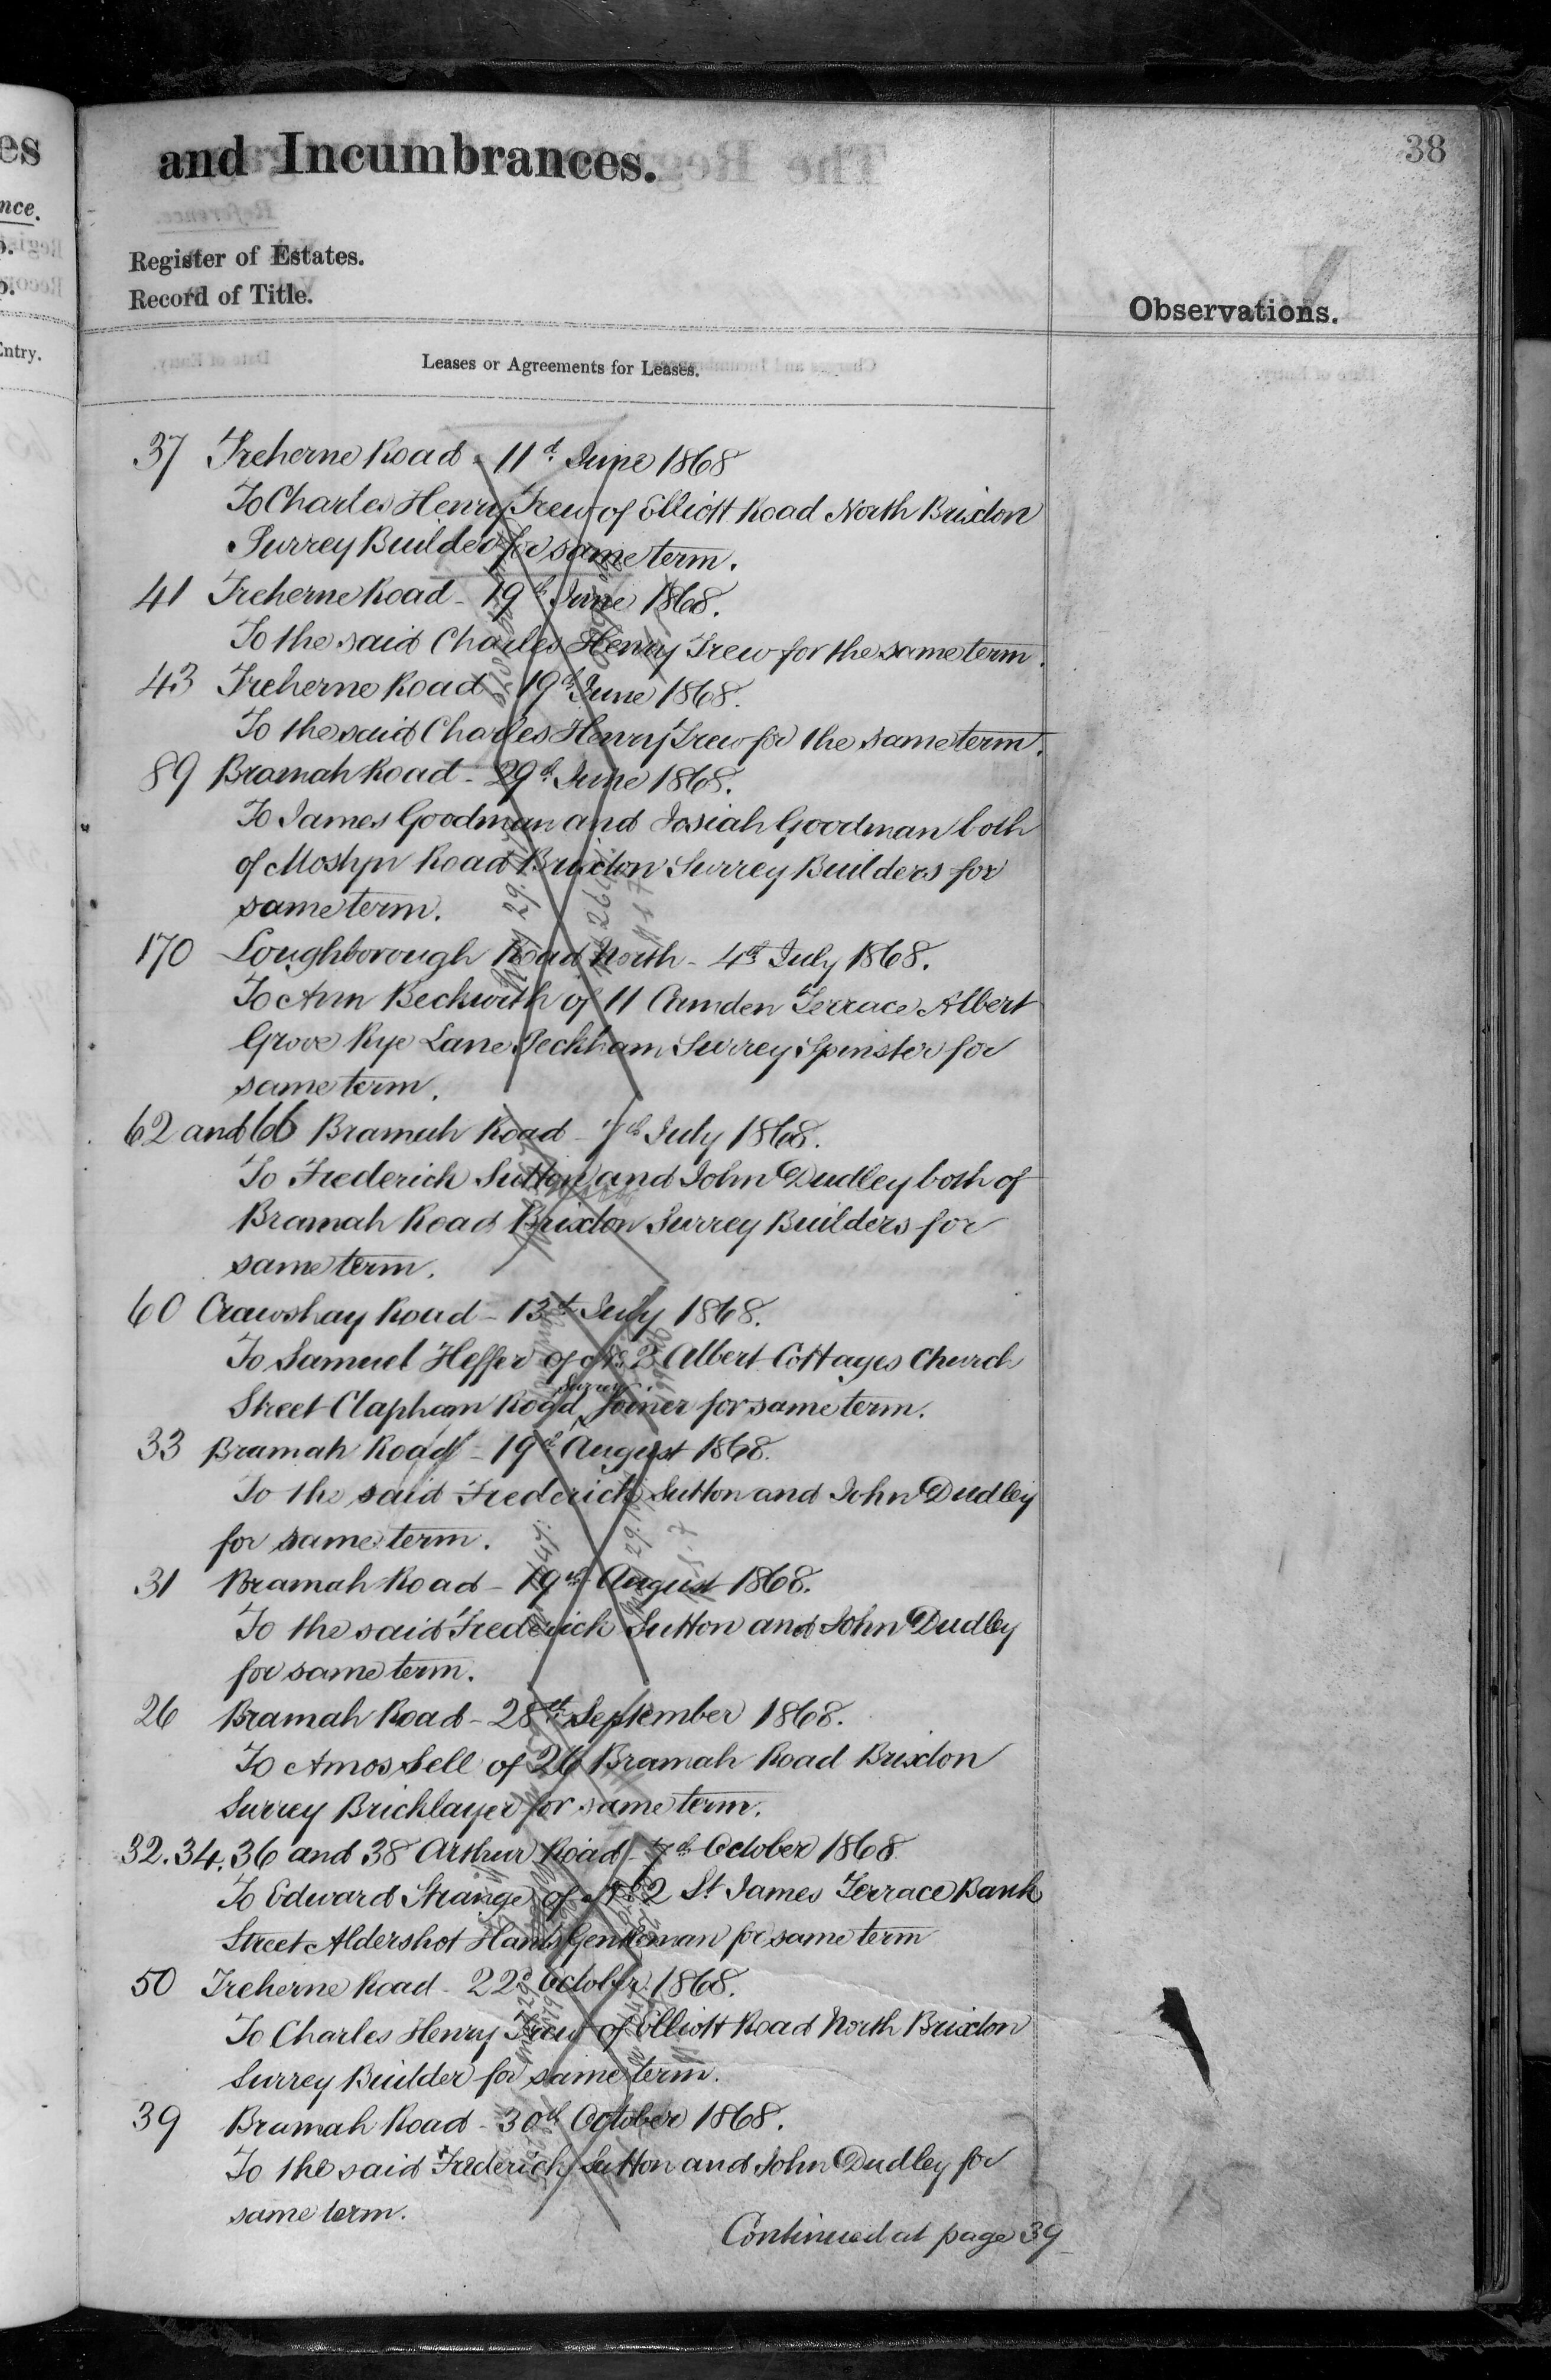 38
and Incumbrances.
Register of Estates.
Record of Title.
Observations.
Leases or Agreements for Leases.
37 Treherne Road - 11th June 1868
To Charles Henry Trew of Elliott Road North Brixton
Surrey Builder for same term.
41 Treherne Road - 19th June 1868.
To the said Charles Henry Trew for the same term.
43 Treherne Road 19th June 1868.
To the said Charles Henry Trew for the same term.
89 Bramah Road - 29th June 1868.
To James Goodman and Josiah Goodman both
of Mostyn Road Brixton Surrey Builders for
same term.
170 Loughborough Road North - 4th July 1868.
To Ann Beckwith of 11 Camden Terrace Albert
Grove Rye Lane Peckham Surrey Spinster for
same term.
62 and 66 Bramah Road - 7th July 1868.
To Frederick Sutton and John Dudley both of
Bramah Road Brixton Surrey Builders for
same term.
60 Crawshay Road - 13th July 1868.
To Samuel Heffer of No. 2 Albert Cottages Church
Street Clapham Road Surrey Joiner for same term.
33 Bramah Road - 19th August 1868.
To the said Frederick Sutton and John Dudley
for same term.
31 Bramah Road - 19th August 1868.
To the said Frederick Sutton and John Dudley
for same term.
26 Bramah Road - 28th September 1868.
To Amos Sell of 26 Bramah Road Brixton
Surrey Bricklayer for same term.
32. 34. 36 and 38 Arthur Road - 7th October 1868
To Edward Strange of No. 2 St James Terrace Bank
Street Aldershot Hants Gentleman for same term
50 Treherne Road - 22d October 1868.
To Charles Henry Trew of Elliott Road North Brixton
Surrey Builder for same term.
39 Bramah Road - 30th October 1868.
To the said Frederick Sutton and John Dudley for
same term.
Continued at page 39